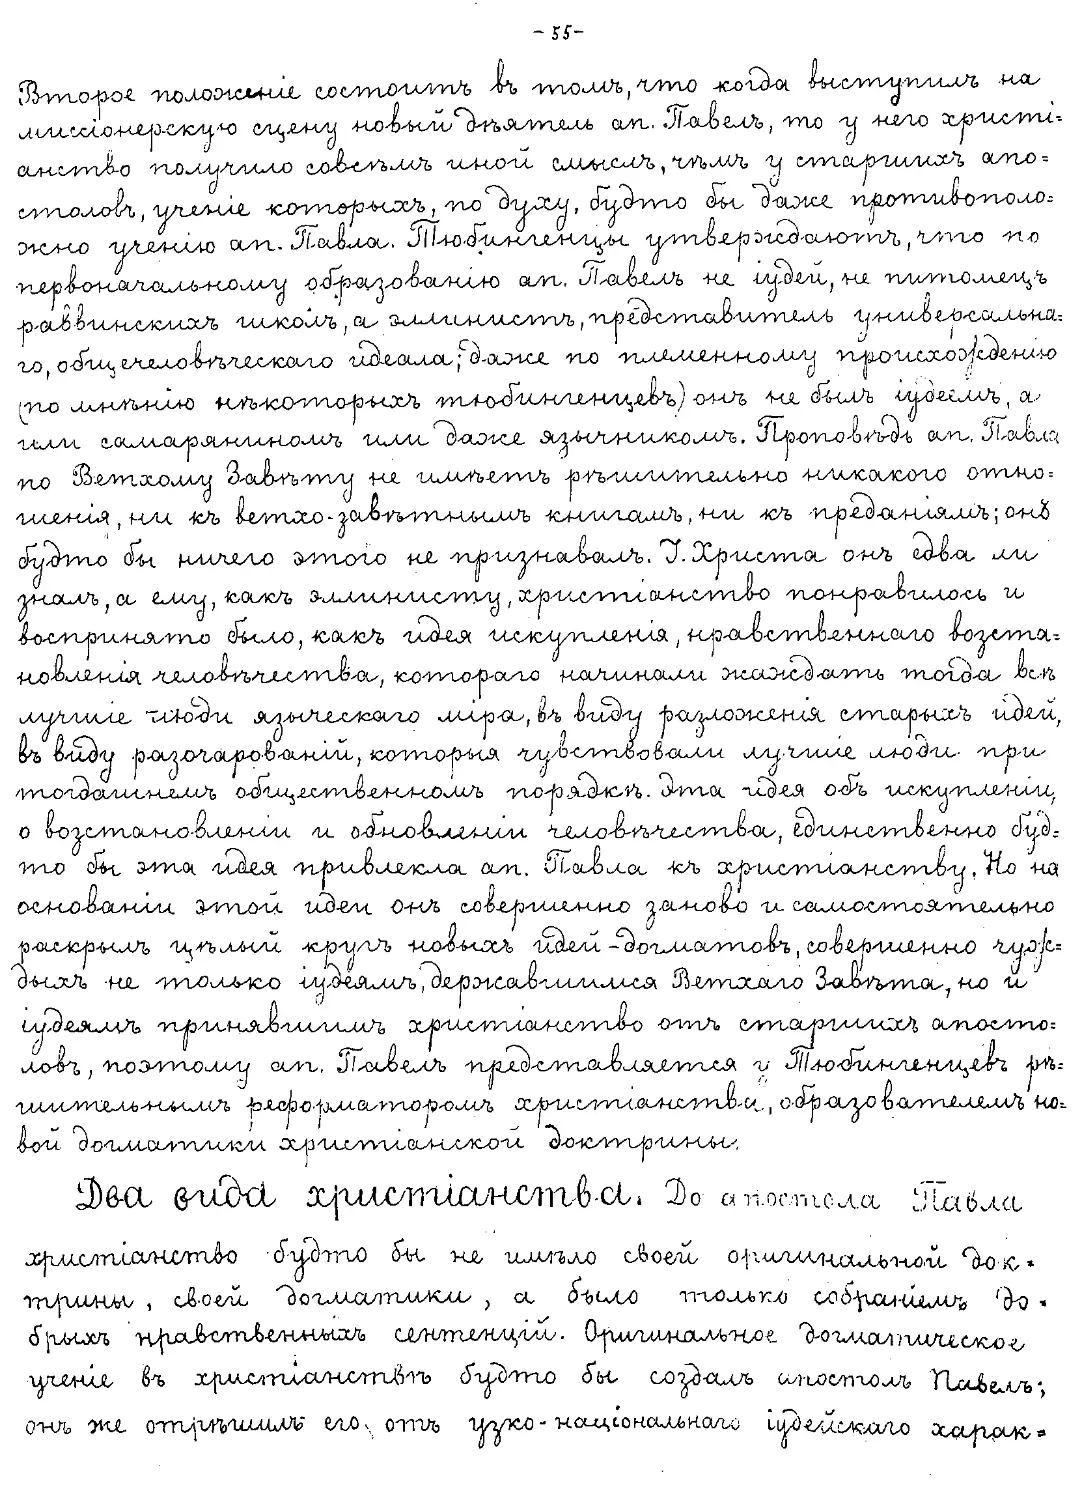 - 55-
Второе положеніе состоитъ въ томъ, что когда выступилъ на
миссіонерскую сцену новый дѣятель ап. Павелъ, то у него христі=
анство получило совсѣмъ иной смыслъ, чѣмъ у старшихъ апо=
столовъ, ученіе которыхъ, по духу, будто бы даже противополо=
жно ученію ап. Павла. Тюбингенцы утверждаютъ, что по
первоначальному образованію ап. Павелъ не іудей, не питомецъ
раввинскихъ школъ, а эллинистъ, представитель универсальна=
го, общечеловѣческаго идеала; даже по племенному происхожденію
(по мнѣнію нѣкоторыхъ тюбингенцевъ) онъ не былъ іудеемъ, а
или самаряниномъ или даже язычникомъ. Проповѣдь ап. Павла
по Ветхому Завѣту не имѣетъ рѣшительно никакого отно=
шенія, ни къ ветхо-завѣтнымъ книгамъ, ни къ преданіямъ; онъ
будто бы ничего этого не признавалъ. І. Христа онъ едва ли
зналъ, а ему, какъ эллинисту, христіанство понравилось и
воспринято было, какъ идея искупленія, нравственнаго возста=
новленія человѣчества, котораго начинали жаждать тогда всѣ
лучшіе люди языческаго міра, въ виду разложенія старыхъ идей,
въ виду разочарованій, которыя чувствовали лучшіе люди при
тогдашнемъ общественномъ порядкѣ. Эта идея объ искупленіи,
о возстановленіи и обновленіи человѣчества, единственно буд=
то бы эта идея привлекла ап. Павла къ христіанству. Но на
основаніи этой идеи онъ совершенно заново и самостоятельно
раскрылъ цѣлый кругъ новыхъ идей-догматовъ, совершенно чуж=
дыхъ не только іудеямъ, державшимся Ветхаго Завѣта, но и
іудеямъ принявшимъ христіанство отъ старшихъ апосто=
ловъ, поэтому ап. Павелъ представляется у Тюбингенцевъ рѣ=
шительнымъ реформаторомъ христіанства, образователемъ но=
вой догматики христіанской доктрины.
Два вида христіанства. До апостола Павла
христіанство будто бы не имѣло своей оригинальной док=
трины, своей догматики, а было только собраніемъ до=
брыхъ нравственныхъ сентенцій. Оригинальное догматическое
ученіе въ христіанствѣ будто бы создалъ апостолъ Павелъ;
онъ же отрѣшилъ его, отъ узко-національнаго іудейскаго харак=